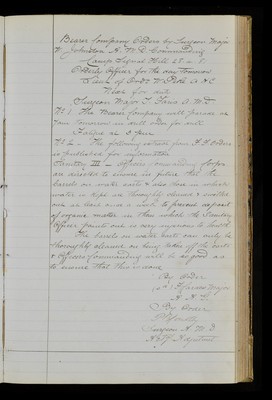 Bearer Company Orders by Surgeon Major
W Johnston A.M.D Commanding
Camp Signal Hill
Orderly Officer for the day tomorrow
Lieut of Orders W A.H.C
Next for duty
Surgeon Major T. A.M.D
No 1. The Bearer Company will parade at
7am tomorrow in drill order for drill
Fatigue at 5 pm
No 2. The following extract from F.F. Orders
is published for information
Sanitary III officers commanding Corps
are desired to ensure in future that the
barrels on water carts & also those in which
water is kept are thoroughly cleaned & washed
out at least once a week to prevent deposit
of organic matter in them which the Sanitary
Officer points out is very injurious to health
The barrels on water carts can only be
thoroughly cleaned on being taken off the carts
& Officers Commanding will be so good as
to ensure that this is done
By Order
Major
By Order
Surgeon A.M.D